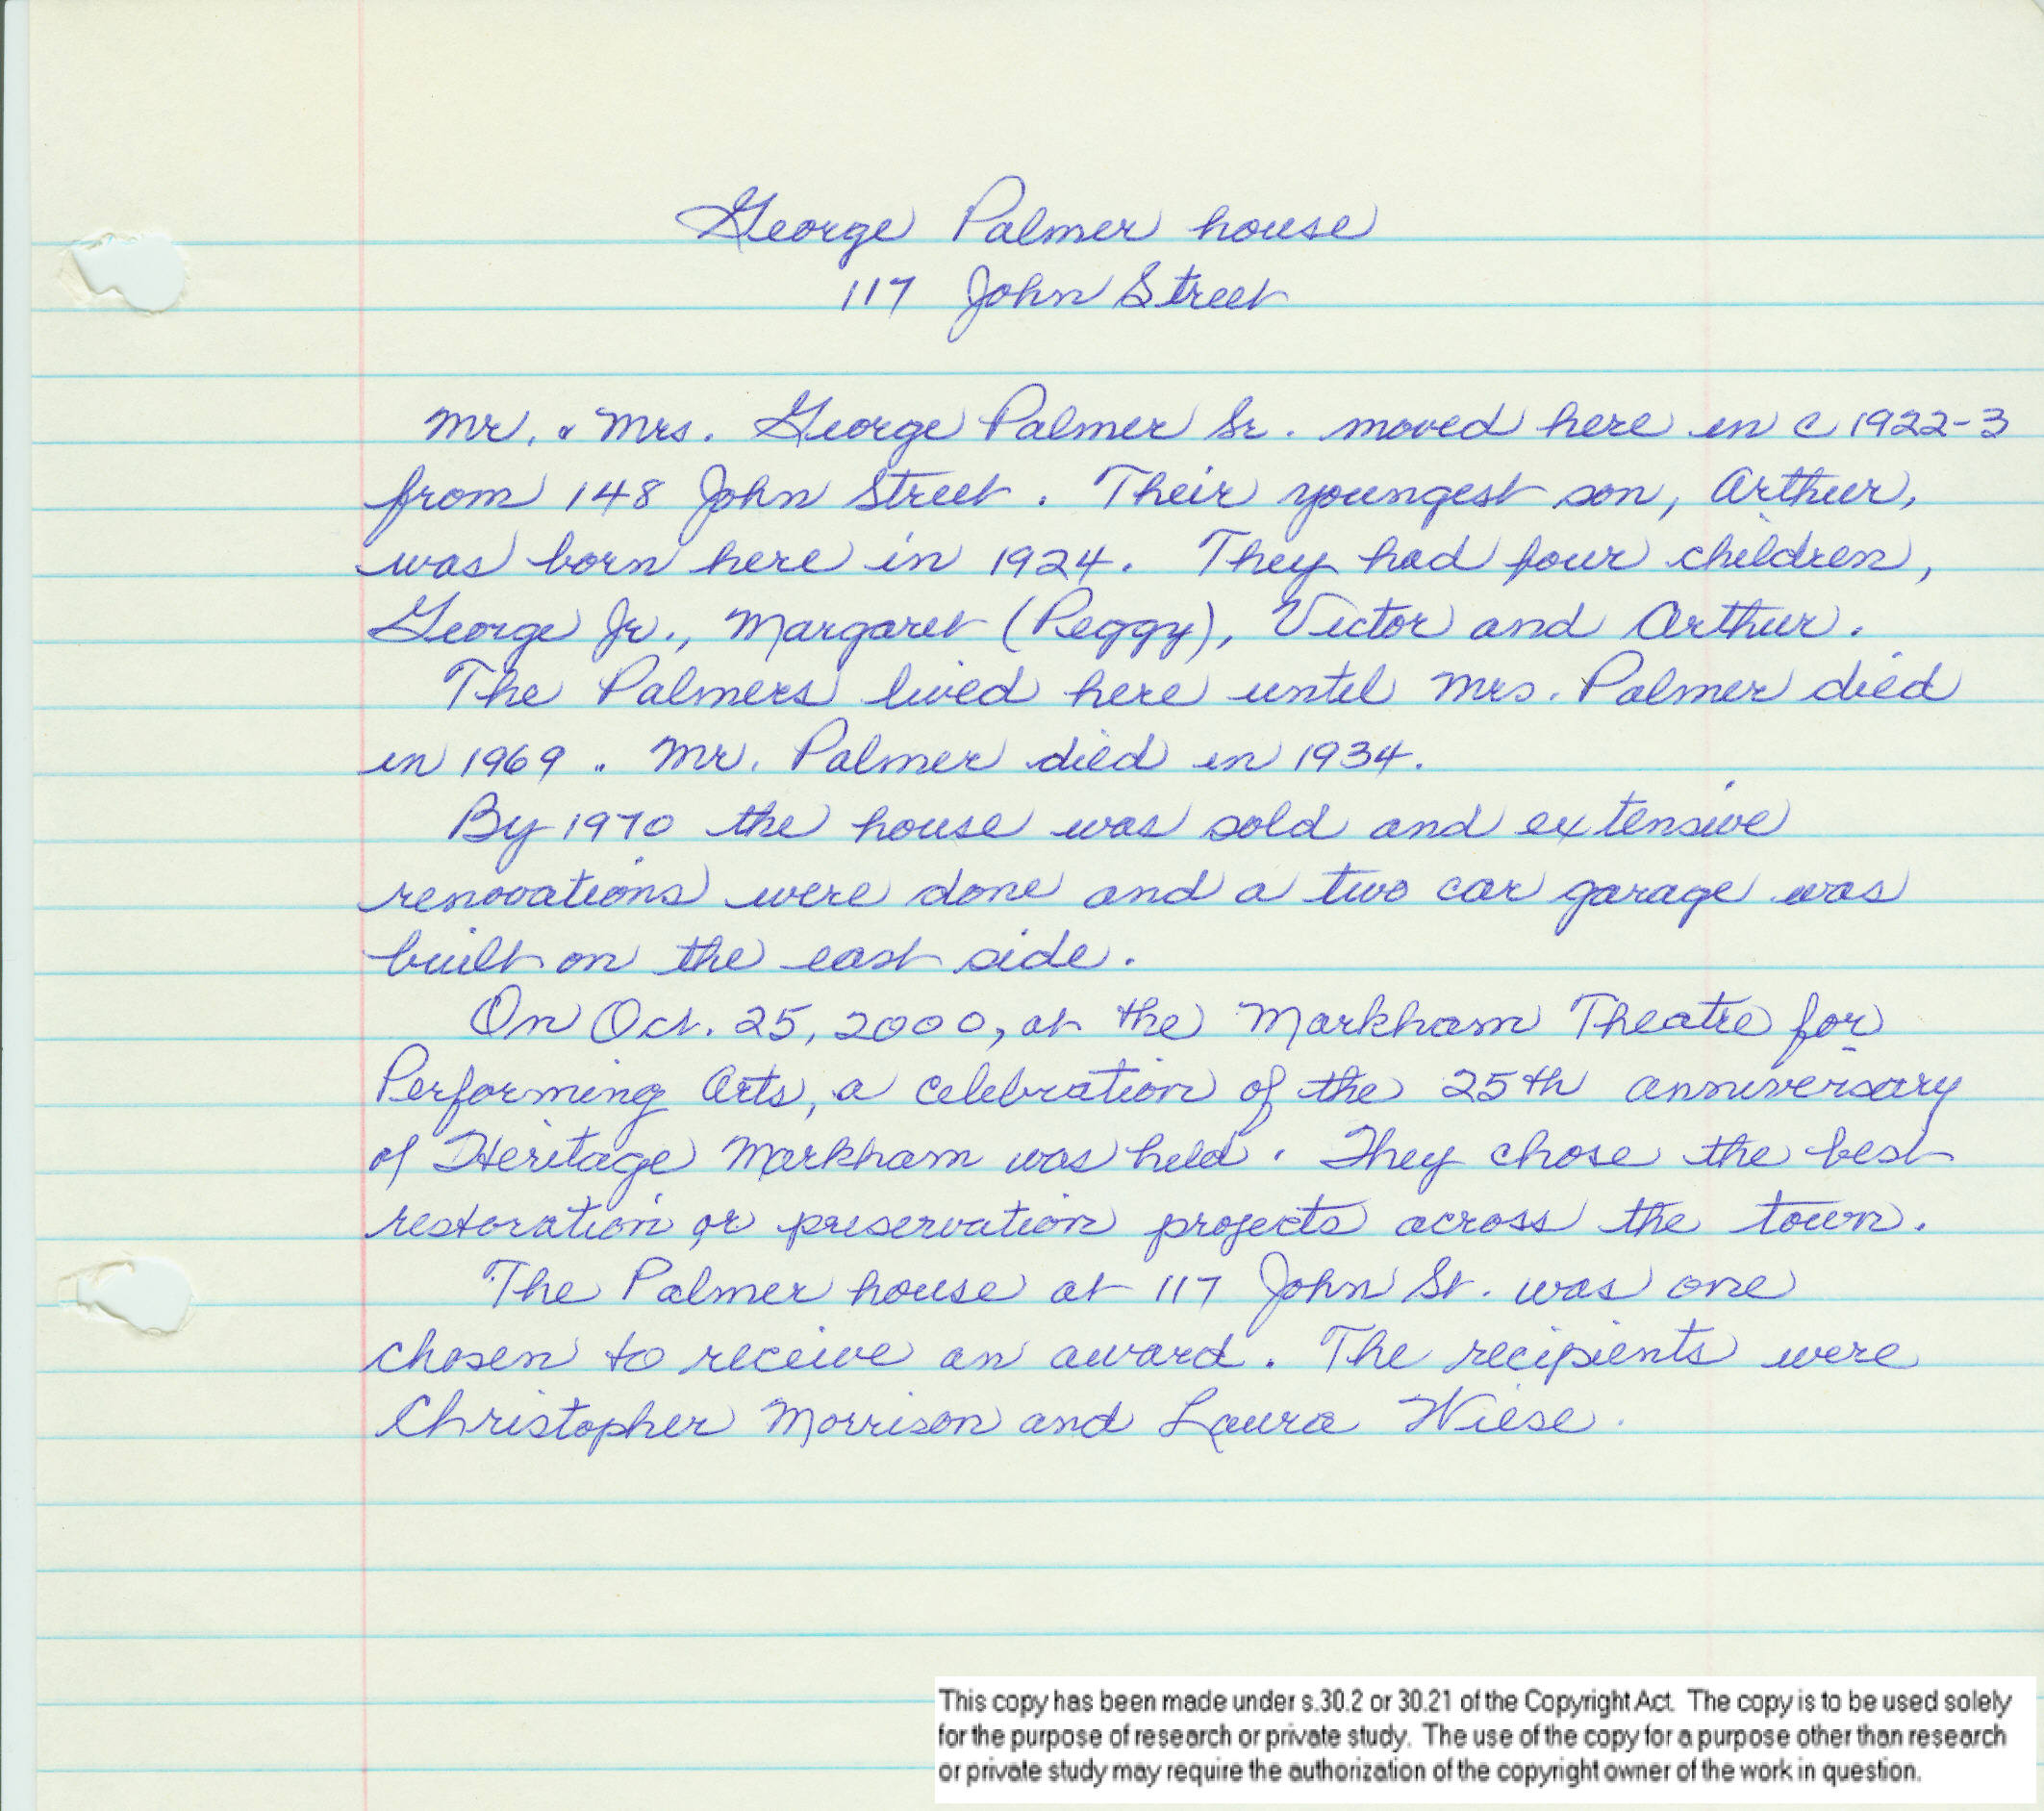 George Palmer house
117 John Street
Mr. & Mrs. George Palmer Sr. moved here in c 1922-3
from 148 John Street. Their youngest son, Arthur,
was born here in 1924. They had four children,
George Jr., Margaret (Peggy), Victor and Arthur.
The Palmers lived here until Mrs. Palmer died
in 1969. Mr. Palmer died in 1934.
By 1970 the house was sold and extensive
renovations were done and a two car garage was
built on the east side.
On Oct. 25, 2000, at the Markham Theatre for
Performing Arts, a celebration of the 25th anniversary
of Heritage Markham was held. They chose the best
restoration or preservation projects across the town.
The Palmer house at 117 John St. was one
chosen to receive an award. The recipients were
Christopher Morrison and Laura Wiese.
This copy has been made under s.30.2 or 30.21 of the Copyright Act. The copy is to be used solely
for the purpose of research or private study. The use of the copy for a purpose other than research
or private study may require the authorization of the copyright owner of the work in question.